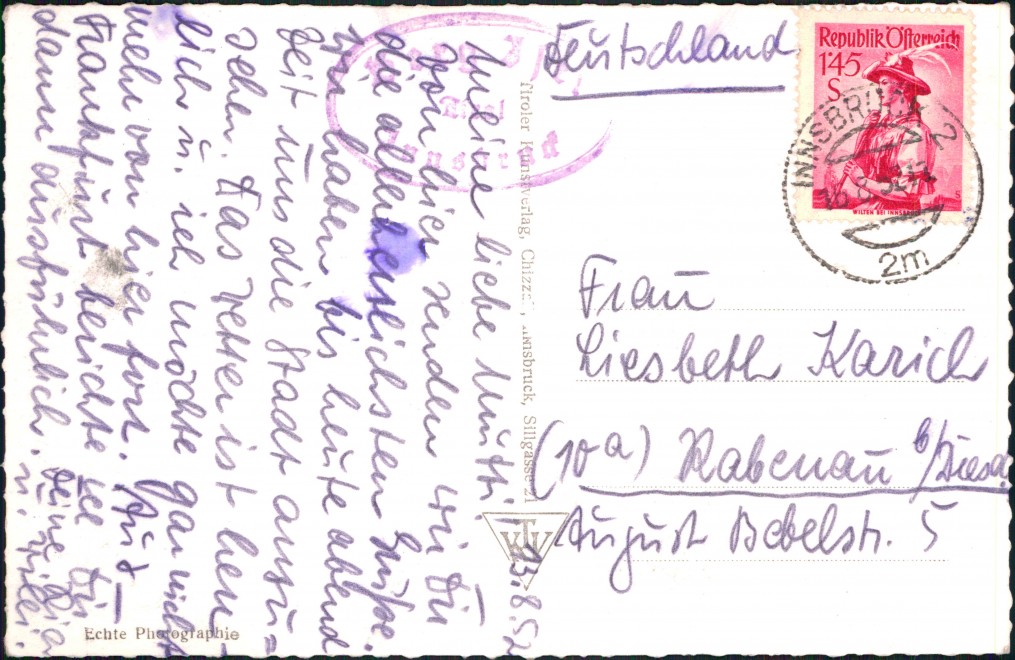 13.8.52
Meine liebe Mutti.
Von hier senden wir Dir
die allerherzlichsten Grüße.
Wir haben bis heute abend
Zeit uns die Stadt anzu=
sehen. Das Wetter ist herr-
lich u. ich möchte gar nicht
mehr von hier fort. Aus
Frankfurt berichte ich Dir
dann ausführlich.
Deine
u. Willi.
Echte Photographie
Tiroler Kunstverlag, Chizzali, Innsbruck, Sillgasse 21
TKV
Deutschland
Republik Österreich
1'45
S
WILTEN BEI INNSBRUCK
INNSBRUCK 2
2m
Frau
Liesbeth Karich
(10a) Rabenau b/Diesd.
August Bebelstr. 5